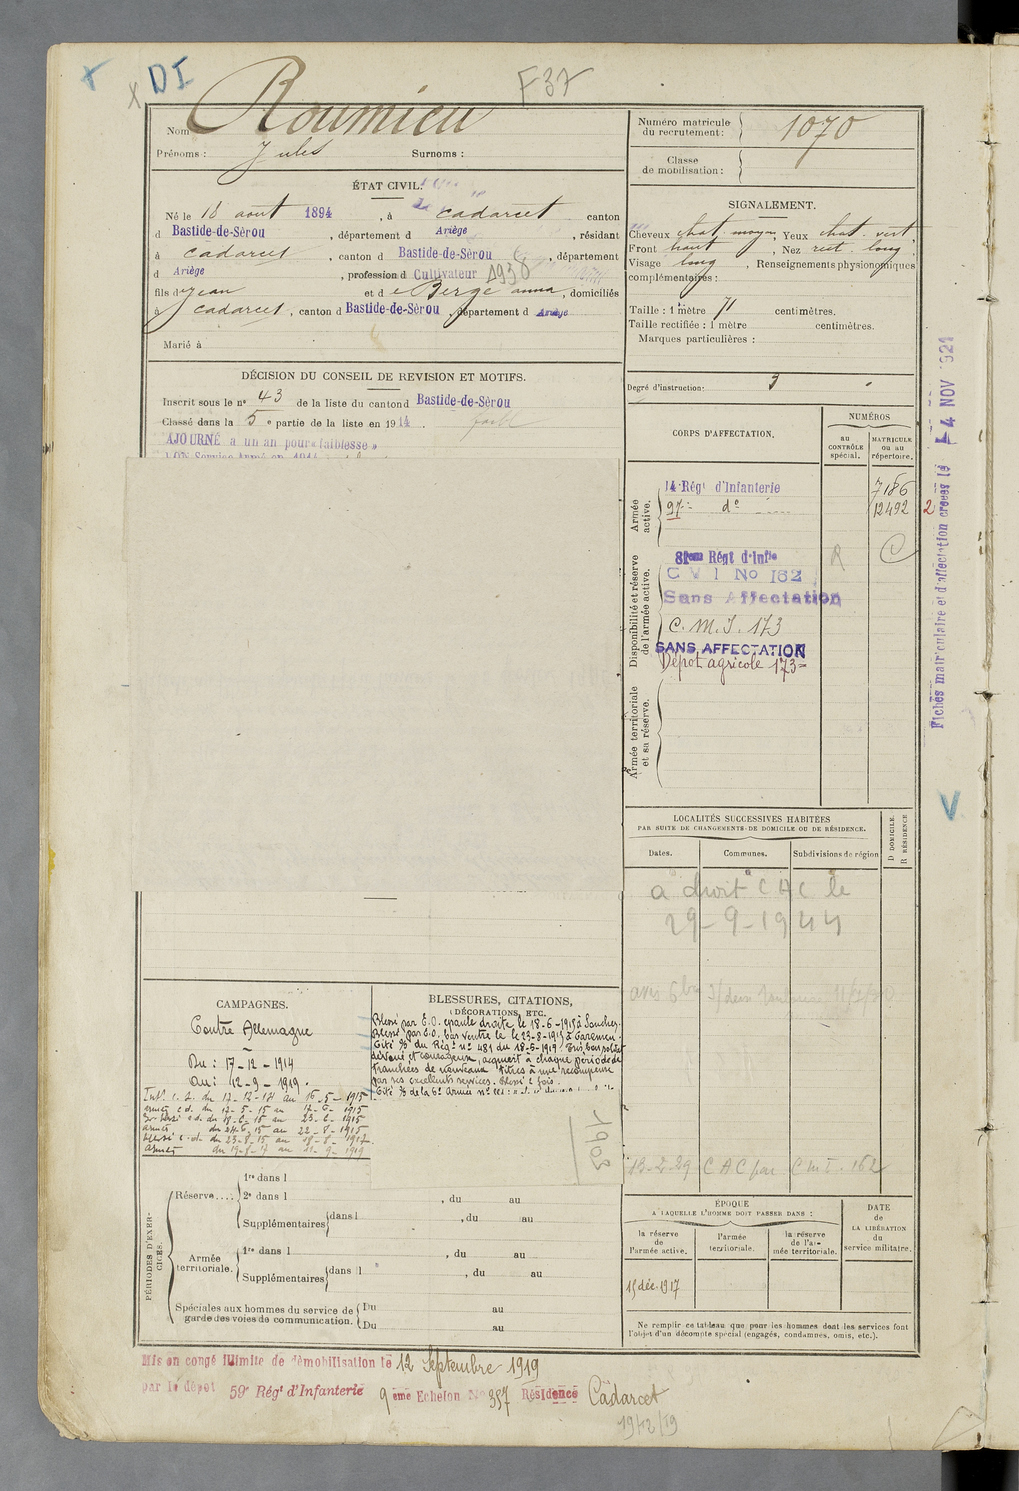 DI
F37
Nom Roumieu
Prénoms : Jules Surnoms :
Numéro matricule du recrutement : 1070
Classe de mobilisation :
ÉTAT CIVIL.
Né le 18 aout 1894, à Cadarcet canton
d Bastide-de-Sérou, département d Ariège, résidant
à Cadarcet, canton d Bastide-de-Sérou, département
d Ariège, profession d Cultivateur 1938
fils de Jean et de Berge anna, domiciliés
à Cadarcet, canton d Bastide-de-Sérou, département d Ariège
Marié à
SIGNALEMENT.
Cheveux chat. moyen, Yeux chat. vert
Front haut, Nez rect. long,
Visage long, Renseignements physionomiques
complémentaires :
Taille : 1 mètre 71 centimètres.
Taille rectifiée : 1 mètre centimètres.
Marques particulières :
Degré d'instruction: 3
DÉCISION DU CONSEIL DE REVISION ET MOTIFS.
Inscrit sous le nº 43 de la liste du canton d Bastide-de-Sérou
Classé dans la 5 e partie de la liste en 1914.
AJOURNÉ a un an pour « faiblesse »
CORPS D'AFFECTATION.
NUMÉROS
au CONTRÔLE spécial.
MATRICULE ou au répertoire.
Armée active.
14 Régt d'Infanterie 7186
97e dº 12492
Disponibilité et réserve de l'armée active.
81eme Régt d'Infie R C
C M I No 162
Sans Affectation
C. M. I. 173
SANS AFFECTATION
Dépot agricole 173
Armée territoriale et sa réserve.
Fiches matriculaire et d'affectation créées le 4 NOV 1921
2
LOCALITÉS SUCCESSIVES HABITÉES
PAR SUITE DE CHANGEMENTS DE DOMICILE OU DE RÉSIDENCE.
D DOMICILE.
R RÉSIDENCE
Dates. Communes. Subdivisions de région
a droit C A C le
29-9-1944
13-2-29 C A C par C m I. 162
CAMPAGNES.
Contre Allemagne
Du : 17-12-1914
Au : 12-9-1919.
Intr c. d. du 17-12-14 au 16-5-1915
armées c d. du 17-5-15 au 17-6-1915
blessé c d. du 18-6-15 au 23-6-1915
armées du 24-6-15 au 22-8-1915
blessé c. d. du 23-8-15 au 18-8-1917
armées du 19-8-17 au 11-9-1919
BLESSURES, CITATIONS,
DÉCORATIONS, ETC.
Blessé par E.O. épaule droite le 18-6-1915 à Souchez.
Blessé par E.O. bas ventre le 23-8-1915 à
Cité % du Régt nº 481 du 18-5-1919. Très bon soldat
dévoué et courageux, acquiert à chaque période de
tranchées de nouveaux titres à une récompense
par ses excellents services. Blessé 2 fois.
Cité % de la 6e Armée nº
1903
PÉRIODES D'EXERCICES.
Réserve....
1re dans l
2e dans l, du au
Supplémentaires dans l, du au
Armée territoriale.
1re dans l, du au
Supplémentaires dans l, du au
Spéciales aux hommes du service de garde des voies de communication.
Du au
Du au
ÉPOQUE
A LAQUELLE L'HOMME DOIT PASSER DANS :
la réserve de l'armée active.
l'armée territoriale.
la réserve de l'armée territoriale.
DATE de LA LIBÉRATION du service militaire.
15 déc. 1917
Ne remplir ce tableau que pour les hommes dont les services font
l'objet d'un décompte spécial (engagés, condamnés, omis, etc.).
Mis en congé illimité de démobilisation le 12 Septembre 1919
par le dépôt 59e Régt d'Infanterie 9 eme Echelon No 357 Résidence Cadarcet